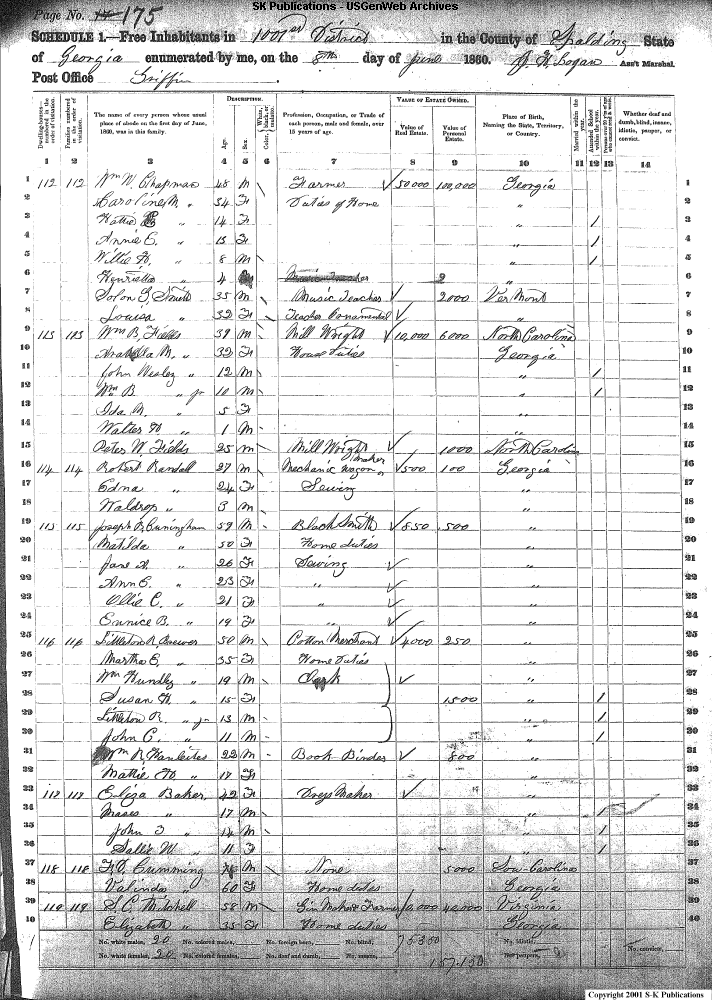 SK Publications - USGenWeb Archives
Page No. 175
SCHEDULE 1.—Free Inhabitants in 1001st District in the County of Spalding State
of Georgia enumerated by me, on the 8th day of June 1860. Ass't Marshal.
Post Office Griffin
DESCRIPTION. VALUE OF ESTATE OWNED.
Dwelling-houses—numbered in the order of visitation. Families numbered in the order of visitation. The name of every person whose usual place of abode on the first day of June, 1860, was in this family. Age. Sex. Profession, Occupation, or Trade of each person, male and female, over 15 years of age. Value of Real Estate. Value of Personal Estate. Place of Birth, Naming the State, Territory, or Country. Married within the year. Attended School within the year. Whether deaf and dumb, blind, insane, idiotic, pauper, or convict.
1 2 3 4 5 6 7 8 9 10 11 12 13 14
1 112 112 Wm W. Chapman 48 M Farmer 50,000 100,000 Georgia 1
2 Caroline M. " 34 F Duties of Home " 2
3 Hattie " 14 F " / 3
4 Annie E. " 13 F " / 4
5 Willie " 8 M " / 5
6 Henrietta " 4 Music Teacher " 6
7 Solon 35 M Music Teacher 2000 Vermont 7
8 Louisa " 32 F Teacher Ornamental " 8
9 113 113 Wm B. Fields 39 M Mill Wright 10,000 6000 North Carolina 9
10 M. " 32 F House Duties Georgia 10
11 John Wesley " 12 M " / 11
12 Wm B. " jr 10 M " / 12
13 Ida " 5 F " 13
14 Walter " 1 M " 14
15 Peter W. Fields 25 M Mill Wright 1000 North Carolina 15
16 114 114 Robert Randall 27 M Mechanic wagon maker 500 100 Georgia 16
17 Edna " 24 F Sewing " 17
18 Waldrop " 3 M " 18
19 115 115 Joseph Cuningham 59 M Black Smith 850 500 " 19
20 Matilda " 50 F Home duties " 20
21 Jane " 26 F Sewing " 21
22 Ann E. " 23 F " " 22
23 Ollie C. " 21 F " " 23
24 Eunice B. " 19 F " " 24
25 116 116 Littleton R. Brewer 50 M Cotton Merchant 4000 250 " 25
26 Martha E. " 35 F Home Duties " 26
27 Wm Hundley " 19 M Clerk " 27
28 Susan " 15 F 1500 " / 28
29 Littleton R. " jr 13 M " / 29
30 John C. " 11 M " / 30
31 Wm R. 22 M Book Binder 800 " 31
32 Mattie " 17 F " 32
33 117 117 Eliza Baker 42 F Dress Maker " 33
34 Moses " 17 M " / 34
35 John " 14 M " / 35
36 Sallie W. " 11 F " / 36
37 118 118 Cumming M None 5000 Sou Carolina 37
38 Valinda " 60 F Home duties Georgia 38
39 119 119 S. C. Mitchell 58 M Gin Maker & Farmer 10,000 40,000 Virginia 39
40 Elizabeth " 35 F Home duties Georgia 40
No. white males, 20 No. colored males, No. foreign born, No. blind, No. idiotic, No. convicts,
No. white females, 20 No. colored females, No. deaf and dumb, No. insane, No. paupers,
Copyright 2001 S-K Publications